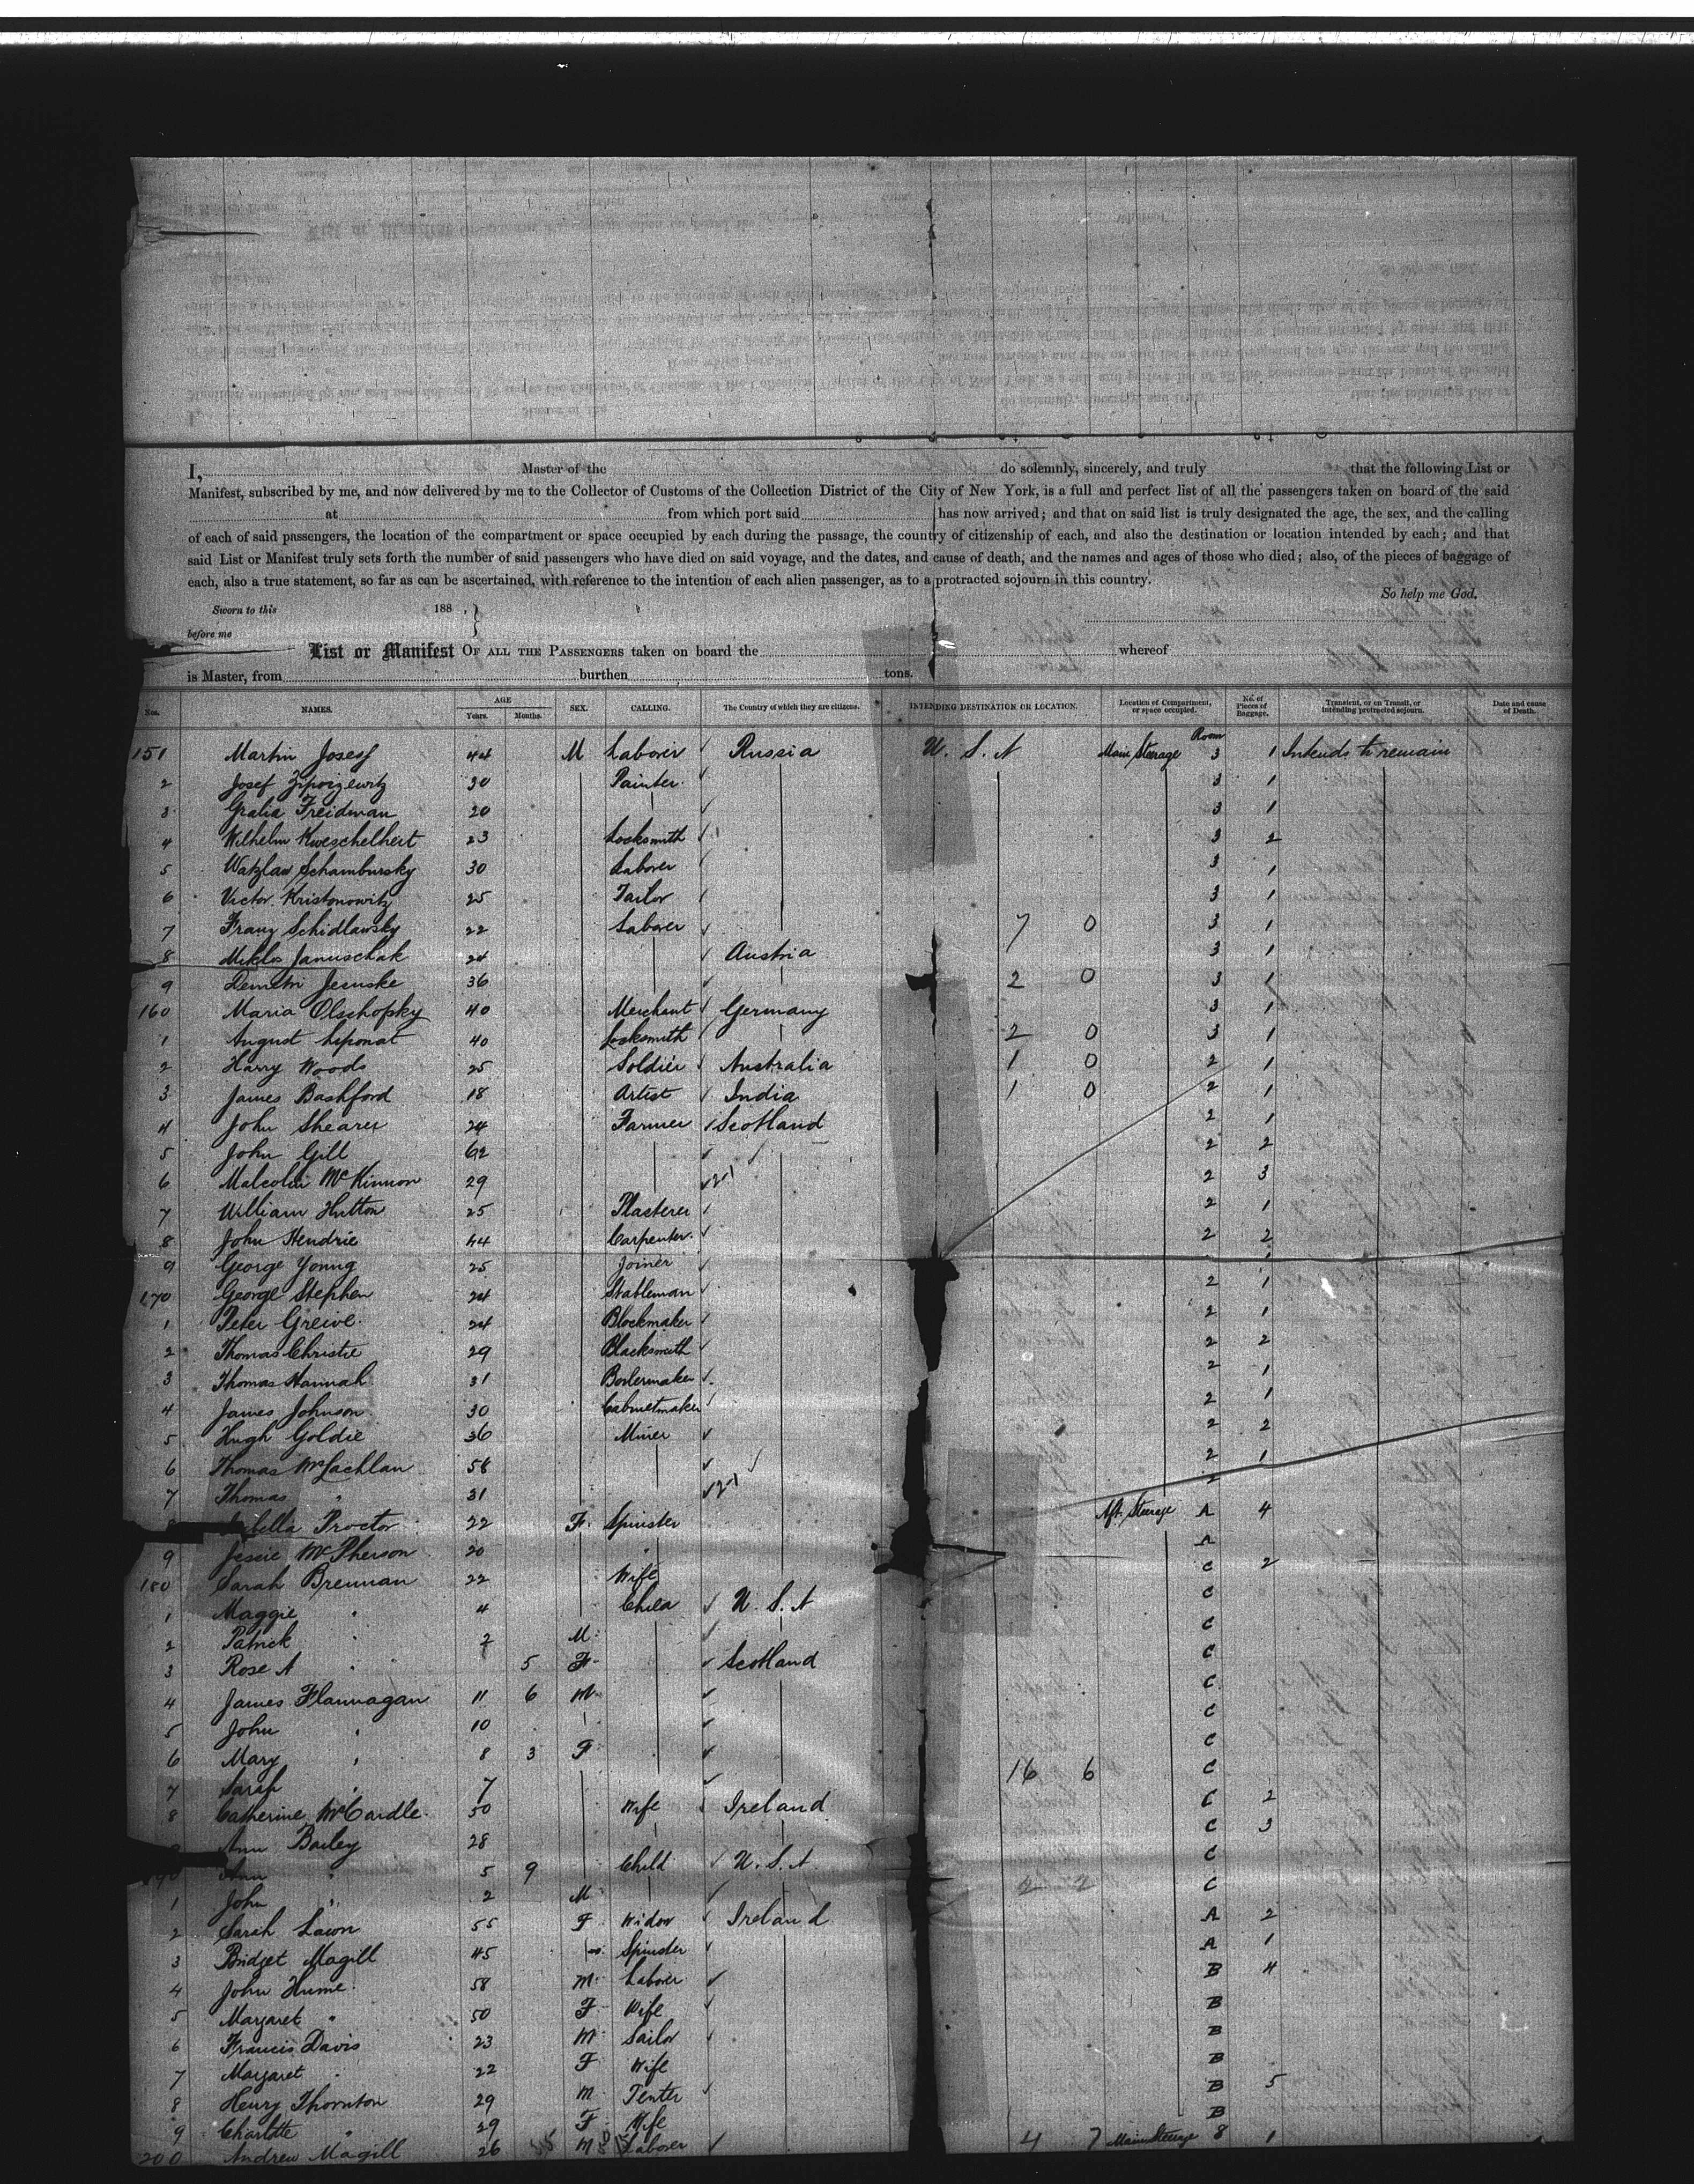 I, Master of the do solemnly, sincerely, and truly that the following List or
Manifest, subscribed by me, and now delivered by me to the Collector of Customs of the Collection District of the City of New York, is a full and perfect list of all the passengers taken on board of the said
at from which port said has now arrived; and that on said list is truly designated the age, the sex, and the calling
of each of said passengers, the location of the compartment or space occupied by each during the passage, the country of citizenship of each, and also the destination or location intended by each; and that
said List or Manifest truly sets forth the number of said passengers who have died on said voyage, and the dates, and cause of death, and the names and ages of those who died; also, of the pieces of baggage of
each, also a true statement, so far as can be ascertained, with reference to the intention of each alien passenger, as to a protracted sojourn in this country.
So help me God.
Sworn to this 188 , }
before me
List or Manifest OF ALL THE PASSENGERS taken on board the whereof
is Master, from burthen tons.
Nos. NAMES. AGE Years. Months. SEX. CALLING. The Country of which they are citizens. INTENDING DESTINATION OR LOCATION. Location of Compartment, or space occupied. No. of Pieces of Baggage. Transient, or on Transit, or intending protracted sojourn. Date and cause of Death.
151 Martin Josesf 44 M Laborer Russia U. S. A Main Steerage Room 3 1 Intends to remain
2 Josef 30 Painter 3 1
3 Gralia Freidman 20 3 1
4 Wilhelm Kweschelheit 23 Locksmith 3 2
5 Watzlaw Schambursky 30 Laborer 3 1
6 Victor Kristonowitz 25 Tailor 3 1
7 Franz Schidlawsky 22 Laborer 7 0 3 1
8 Miklos Januschak 24 Austria 3 1
9 Demitri Jesuske 36 2 0 3 1
160 Maria Olschofsky 40 Merchant Germany 3 1
1 August Liponat 40 Locksmith 2 0 3 1
2 Harry Woods 25 Soldier Australia 1 0 2 1
3 James Bashford 18 Artist India 1 0 2 1
4 John Shearer 24 Farmer Scotland 2 1
5 John Gill 62 2 2
6 Malcolm McKinnon 29 2 3
7 William Hutton 25 Plasterer 2 1
8 John Hendrie 44 Carpenter 2 2
9 George Young 25 Joiner
170 George Stephen 24 Stableman 2 1
1 Peter Greive 24 Blockmaker 2 1
2 Thomas Christie 29 Blacksmith 2 2
3 Thomas Hannah 31 Boilermaker 2 1
4 James Johnson 30 Cabinetmaker 2 1
5 Hugh Goldie 36 Miner 2 2
6 Thomas McLachlan 58 2 1
7 Thomas " 31 2
8 Proctor 22 F Spinster Aft. Steerage A 4
9 Jessie McPherson 20 " A
180 Sarah Brennan 22 Wife C 2
1 Maggie " 4 Child U. S. A C
2 Patrick " 2 M C
3 Rose A " 5 F Scotland C
4 James Flannagan 11 6 M C
5 John " 10 C
6 Mary " 8 3 F C
7 Sarah " 7 16 6 C
8 Catherine McCardle 50 Wife Ireland C 2
Ann Bailey 28 C 3
Ann " 5 9 Child U. S. A C
1 John " 2 M 2 2 C
2 Sarah Lawn 55 F Widow Ireland A 2
3 Bridget Magill 45 Spinster A 1
4 John Hume 58 M Laborer B 4
5 Margaret " 50 F Wife B
6 Francis Davis 23 M Sailor B
7 Margaret " 22 F Wife B
8 Henry Thornton 29 M Tenter B 5
9 Charlotte " 29 F Wife B
200 Andrew Magill 26 M Laborer 4 7 Main Steerage 8 1